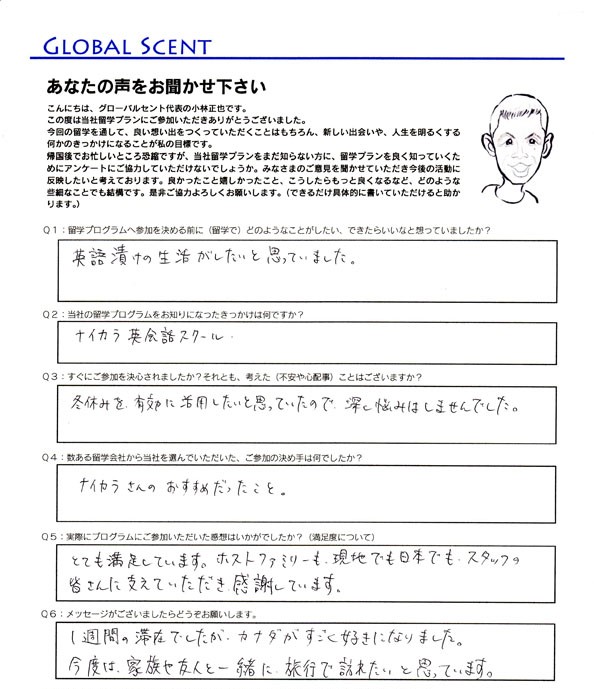 GLOBAL SCENT
あなたの声をお聞かせ下さい
こんにちは、グローバルセント代表の小林正也です。
この度は当社留学プランにご参加いただきありがとうございました。
今回の留学を通して、良い想い出をつくっていただくことはもちろん、新しい出会いや、人生を明るくする
何かのきっかけになることが私の目標です。
帰国後でお忙しいところ恐縮ですが、当社留学プランをまだ知らない方に、留学プランを良く知っていくた
めにアンケートにご協力していただけないでしょうか。みなさまのご意見を聞かせていただき今後の活動に
反映したいと考えております。良かったこと嬉しかったこと、こうしたらもっと良くなるなど、どのような
些細なことでも結構です。是非ご協力よろしくお願いします。（できるだけ具体的に書いていただけると助か
ります。）
Q1：留学プログラムへ参加を決める前に（留学で）どのようなことがしたい、できたらいいなと想っていましたか？
英語漬けの生活がしたいと思っていました。
Q2：当社の留学プログラムをお知りになったきっかけは何ですか？
ナイカラ英会話スクール.
Q3：すぐにご参加を決心されましたか？それとも、考えた（不安や心配事）ことはございますか？
冬休みを有効に活用したいと思っていたので、深い悩みはしませんでした。
Q4：数ある留学会社から当社を選んでいただいた、ご参加の決め手は何でしたか？
ナイカラさんのおすすめだったこと。
Q5：実際にプログラムにご参加いただいた感想はいかがでしたか？（満足度について）
とても満足しています。ホストファミリーも、現地でも日本でも、スタッフの
皆さんに支えていただき、感謝しています。
Q6：メッセージがございましたらどうぞお願いします。
1週間の滞在でしたが、カナダがすごく好きになりました。
今度は、家族や友人と一緒に、旅行で訪れたいと思っています。